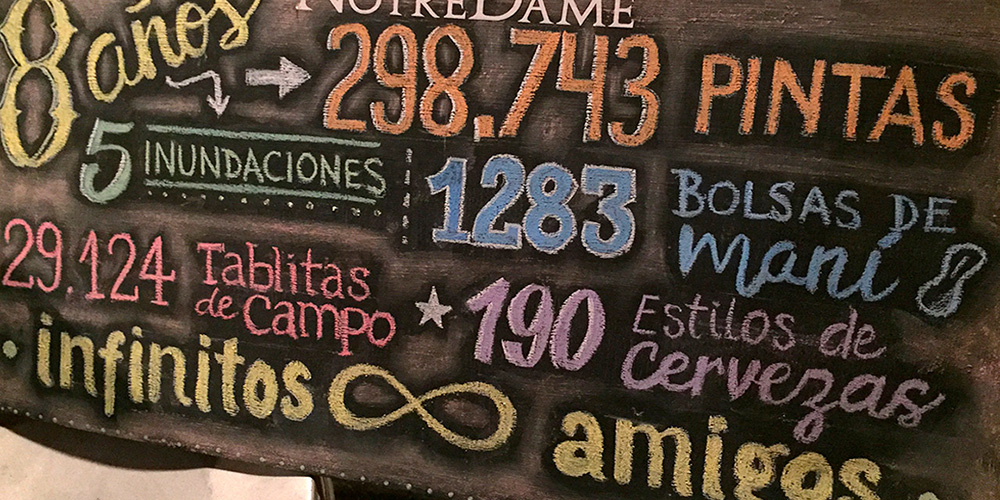 NOTREDAME
8 años
298.743 PINTAS
5 INUNDACIONES
1283 BOLSAS DE
maní
29.124 Tablitas
de Campo
190 Estilos de
Cervezas
infinitos
amigos